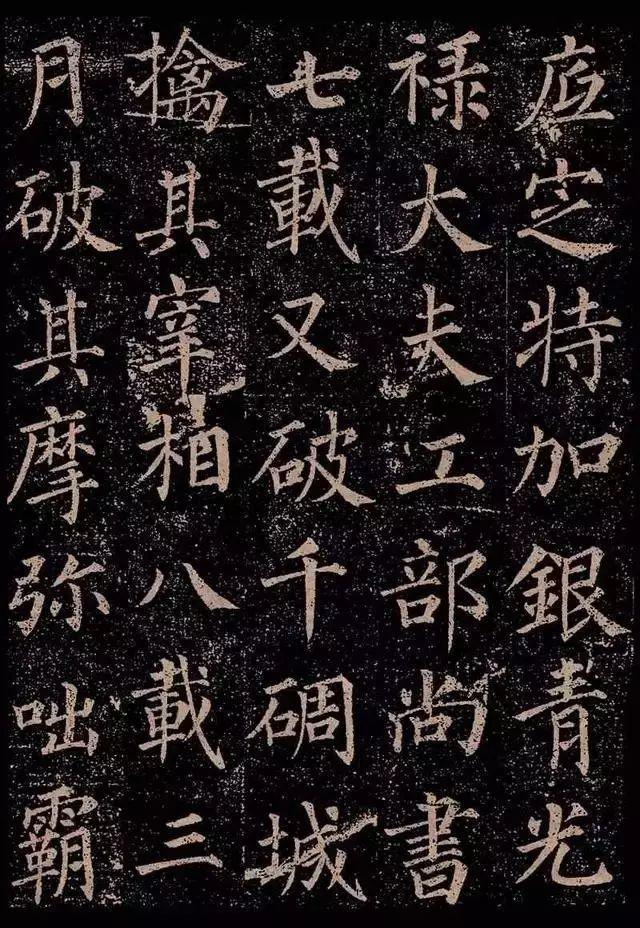 底㝎特加銀青光
禄大夫工部尚書
七載又破千碉城
擒其宰相八載三
月破其摩弥咄霸